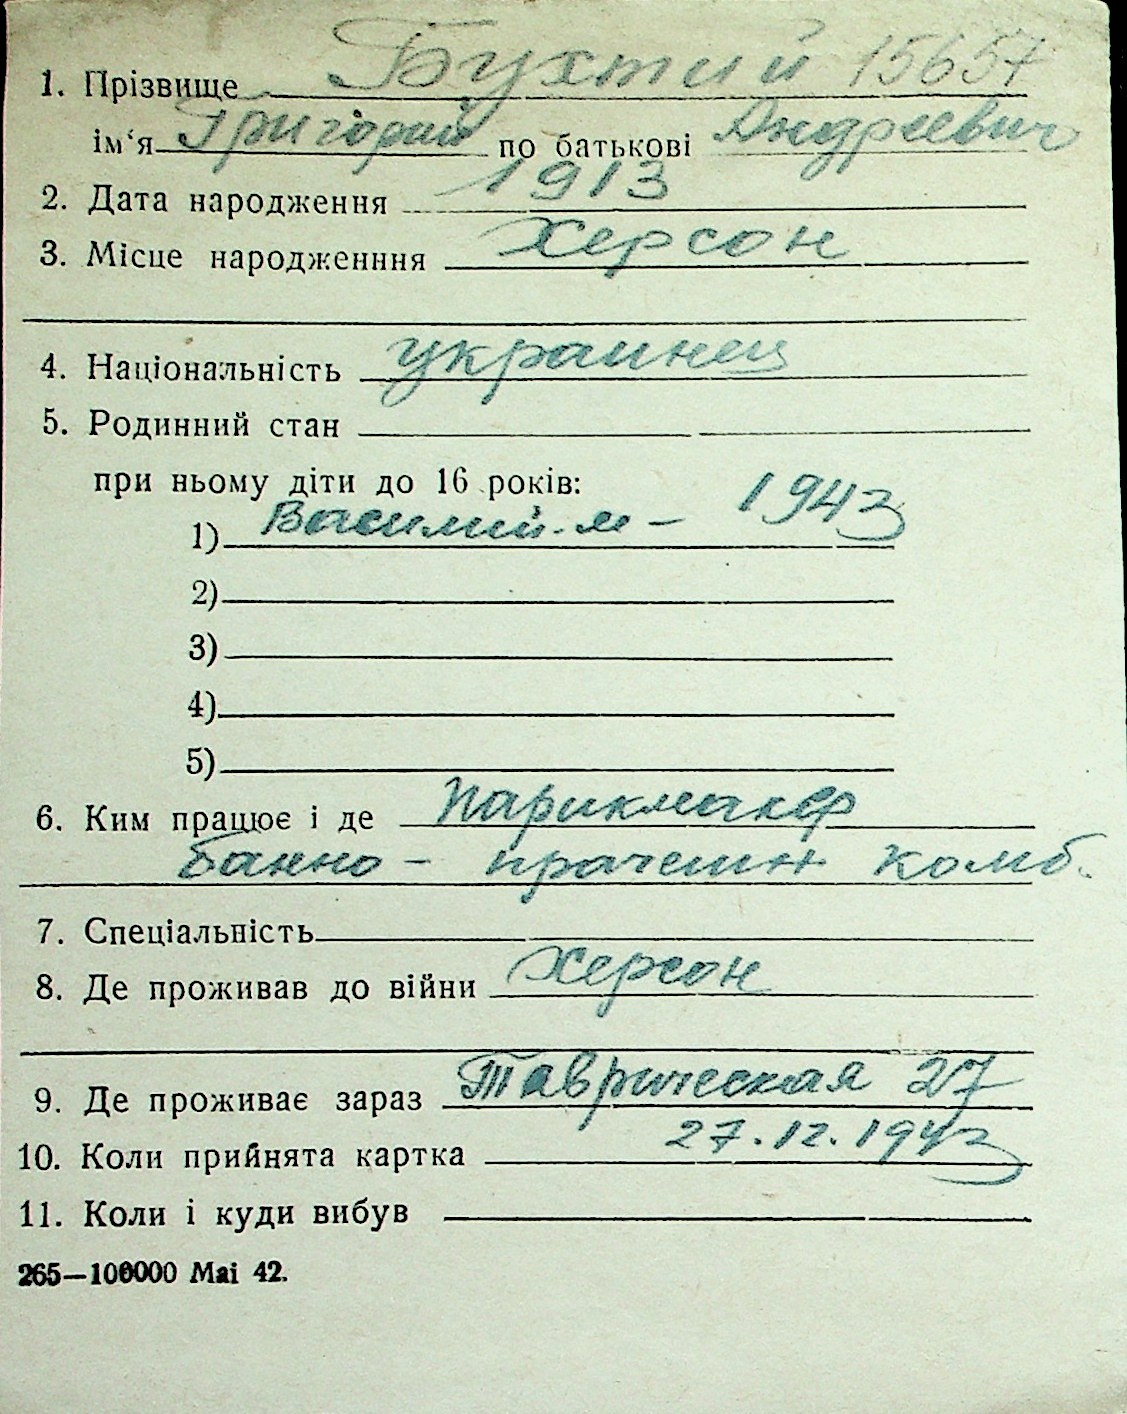 1. Прізвище Бухтий 15657
ім‘я Григорий по батькові Андреевич
2. Дата народження 1913
3. Місце народженння Херсон
4. Національність украинец
5. Родинний стан
при ньому діти до 16 років:
1) Василий. м – 1943
2)
3)
4)
5)
6. Ким працює і де Парикмахер
банно – прачешн комб.
7. Спеціальність
8. Де проживав до війни Херсон
9. Де проживає зараз Таврическая 27
10. Коли прийнята картка 27.12.1943
11. Коли і куди вибув
265—100000 Mai 42.